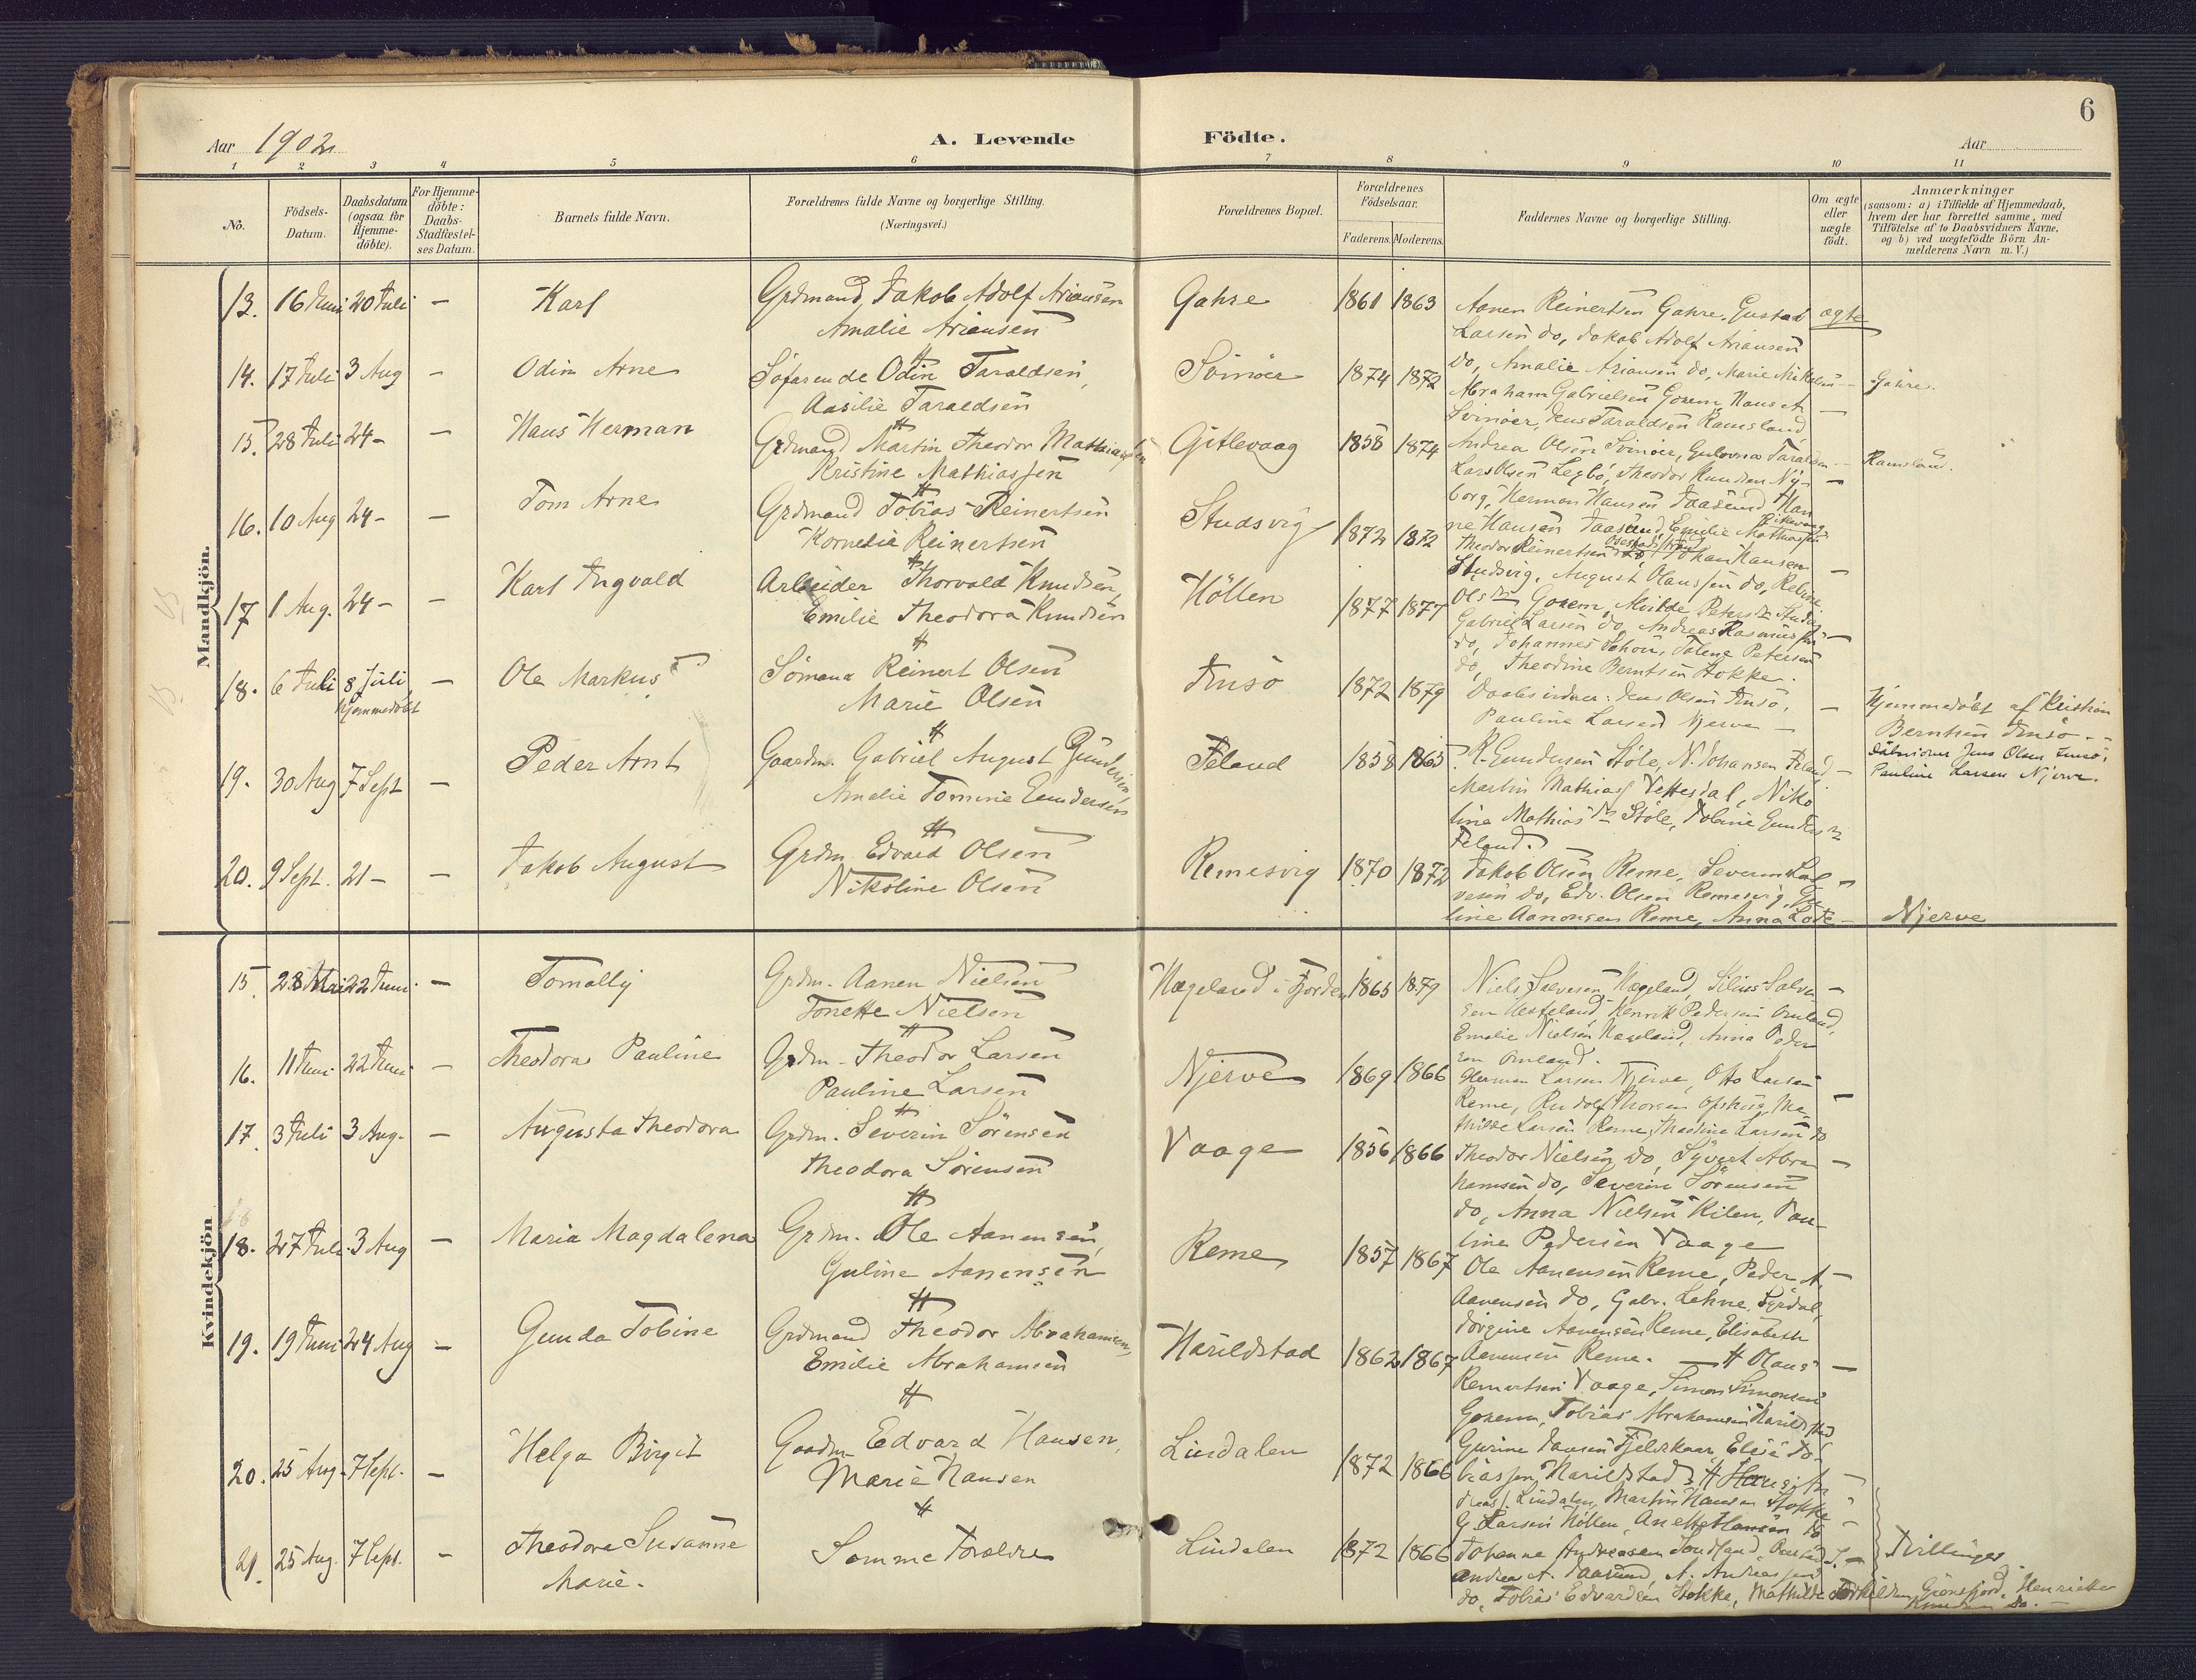 6
Aar 1902
A. Levende Födte.
Aar
1 2 3 4 5 6 7 8 9 10 11
No.
Födsels-Datum.
Daabsdatum (ogsaa for Hjemme-döbte).
For Hjemme-döbte: Daabs-Stadfæstel-ses Datum.
Barnets fulde Navn.
Forældrenes fulde Navne og borgerlige Stilling.
(Næringsvei.)
Forældrenes Bopæl.
Forældrenes Födselsaar.
Faderens. Moderens.
Faddernes Navne og borgerlige Stilling.
Om ægte eller uægte födt.
Anmærkninger
(saasom: a) i Tilfælde af Hjemmedaab, hvem der har forrettet samme, med Tilföielse af to Daabsvidners Navne, og b) ved uægtefödte Börn An-melderens Navn m.V.)
Mandkjön.
13. 16 Juni 20 Juli - Karl
Grdmand, Jakob Adolf Ariansen
Amalie Ariansen
Gahre 1861 1863
Aanen Reinertsen Gahre, Gustav
Larsen do, Jakob Adolf Ariansen
do, Amalie Ariansen do, Marie
ægte
Gahre.
14. 17 Juli 3 Aug - Odin Arne
Söfarende Odin Taraldsen,
Aasilie Taraldsen
Svinöer 1874 1872
Abraham Gabrielsen Gosem, Hans A.
Svinöer, Jens Taraldsen Ramsland,
Andrea Olsen Svinöer,
Ramsland.
15. 28 Juli 24 - - Hans Herman
Grdmand Martin Theodor Mathiassen
Kristine Mathiassen
Gitlevaag 1858 1874
Lars Olsen Legbö, Theodor Knudsen Ny-
borg, Herman Hansen Taasund, Han
ne Hansen Taasund, Emilie Mathiassen
16. 10 Aug 24 - - Tom Arne
Grdmand Tobias Reinertsen
Kornelie Reinertsen
Studsvig 1872 1872
Theodor Reinertsen Johan Hansen
Studsvig, August Olaussen do,
Gosem,
17 1 Aug. 24 - - Karl Ingvald
Arbeider Thorvald Knudsen,
Emilie Theodora Knudsen
Höllen 1877 1877
Gabriel Larsen do, Andreas Rasmussen
do, Johannes Schou, Petersen
do, Theodine Berntsen Stokke.
18. 6 Juli 8 Juli Hjemmedöbt - Ole Markus
Sömand Reinert Olsen
Marie Olsen
1872 1879
Jens Olsen
Pauline Larsen Njerve -
Hjemmedöbt af Kristian
Berntsen
Jens Olsen
Pauline Larsen Njerve.
19. 30 Aug 7 Sept - Peder Arnt
Gaardm. Gabriel August Gundersen
Amalie Tomine Gundersen
Feland 1858 1865
K. Gundersen Stöle, N. Johansen Feland
Martin Mathiass Vettesdal, Niko
line Stöle,
Feland.
20. 9 Sept. 21 - - Jakob August
Grdm. Edvard Olsen
Nikoline Olsen
Remesvig 1870 1872
Jakob Olsen Reme, Severin
do, Edv. Olsen Remesvig,
line Aanonsen Reme, Anna
Njerve
Kvindekjön
15. 28 Mai 22 Juni - Tomally
Grdm. Aanen Nielsen
Tonette Nielsen
Hægeland i Fjorden 1865 1879
Niels Salvesen Hægeland, Silius Salve
sen Henrik Pedersen Omland,
Emelie Nielsen Hægeland, Anna Peder
sen Omland.
16. 11 Juni 22 Juni - Theodora Pauline
Grdm. Theodor Larsen
Pauline Larsen
Njerve 1869 1866
Herman Larsen Njerve, Otto Larsen
Reme, Rudolf Thorsen
thilde Larsen Reme, Theoline Larsen do
17. 3 Juli 3 Aug. - Augusta Theodora
Grdm. Severin Sörensen
Theodora Sörensen
Vaage 1856 1866
Theodor Nielsen do, Syvert Abra
hamsen do, Severin Sörensen
do, Anna Nielsen Kilen, Pau-
line Pedersen Vaage
18. 27 Juli. 3 Aug - Maria Magdalena
Grdm. Ole Aanensen,
Guline Aanensen
Reme 1857 1867
Ole Aanensen Reme, Peder A
Aanensen do, Gabr. Lehne Syrdal,
Jörgine Aanensen Reme, Elisabeth
Aanensen Reme.
19. 19 Juni 24 Aug - Gunda Tobine
Grdmand Theodor Abrahamsen,
Emilie Abrahamsen
Harildstad 1862 1867
Olaus
Reinertsen Vaage, Simon Simonsen
Gosem, Tobias Abrahamsen Harildstad
Gurine Jansen Fjeldskaar, Elise To-
biassen Harildstad
20. 25 Aug. 7 Sept. - Helga Birgit
Gaardm Edvard Hansen,
Marie Hansen
Lindalen 1872 1866
Hans An
dreass. Lindalen, Martin Hansen Stokke
G. Larsen Höllen, Anette Hansen do
21. 25 Aug. 7 Sept. - Theodore Susanne
Marie.
Samme Forældre
Lindalen 1872 1866
Johanne Andreassen
Andrea A. Taasund, A. Andreassen
do, Tobias Edvardsen Stokke, Mathilde Grönsfjord, Henriette
Knudsen do. -
Tvillinger